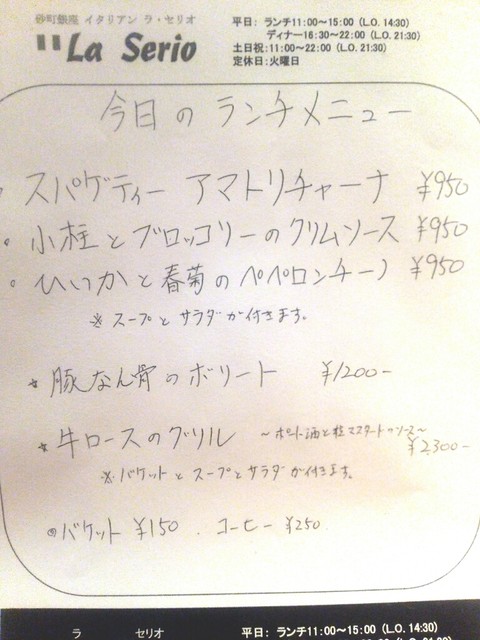 砂町銀座 イタリアン ラ・セリオ
"La Serio
平日: ランチ11:00～15:00 (L.O. 14:30)
ディナー16:30～22:00 (L.O. 21:30)
土日祝:11:00～22:00 (L.O. 21:30)
定休日:火曜日
今日のランチメニュー
スパゲティー アマトリチャーナ ¥950
。小柱とブロッコリーのクリムソース ¥950
。ひいかと春菊のペペロンチーノ ¥950
※スープとサラダが付きます。
☆豚なん骨のボリート ¥1200-
☆牛ロースのグリル ～ポート酒と粒マスタードのソース～
¥2300-
※バケットとスープとサラダが付きます。
◎バケット ¥150 . コーヒー ¥250
ラ セリオ
平日: ランチ11:00～15:00 (L.O. 14:30)